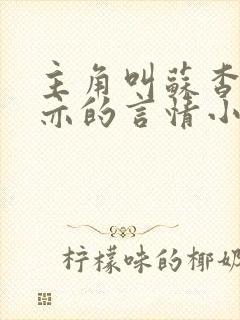 主角叫蘇杳
亦的言情小
柠檬味的椰奶